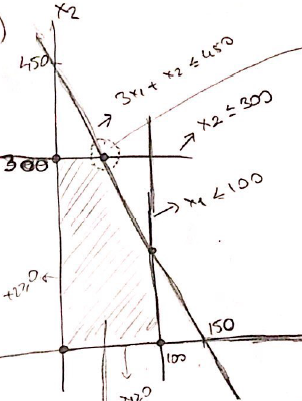 )
x₂
450
3x₁ + x₂ ≤ 450
x₂ ≤ 300
300
x₁ ≤ 100
150
100